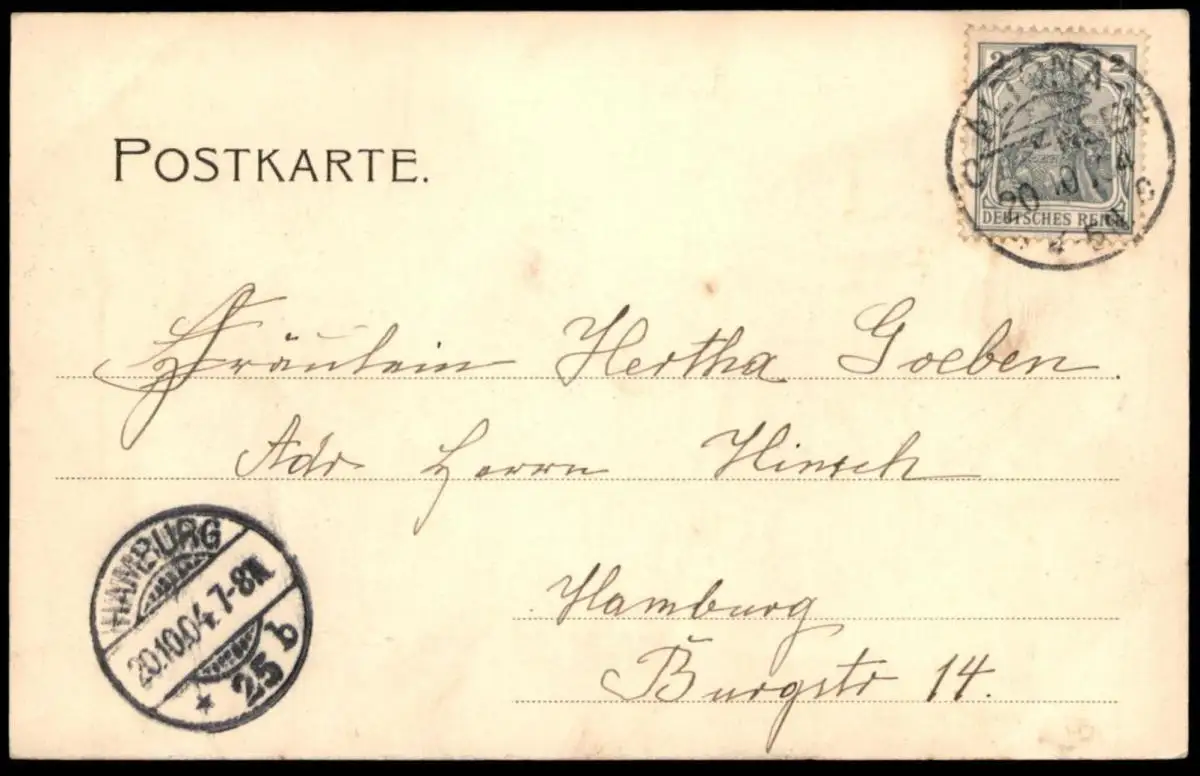 POSTKARTE.
2 2
DEUTSCHES REICH
20.10.04
Fräulein Hertha Goeben
Adr Herrn Hinsch
Hamburg
Burgstr 14.
HAMBURG
20.10.04. 7-8N
* 25 b